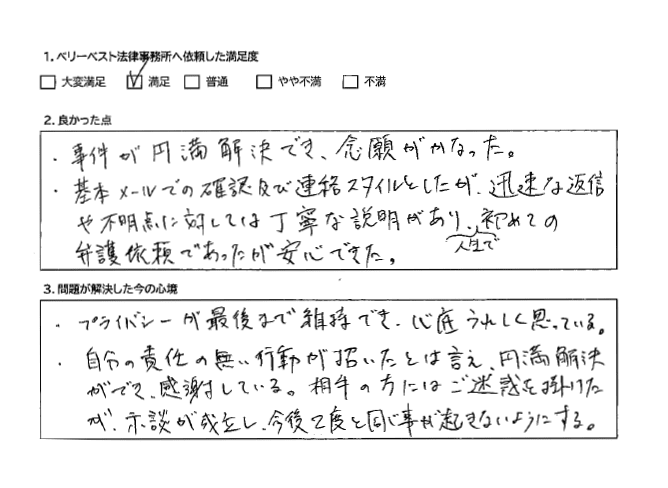 1. ベリーベスト法律事務所へ依頼した満足度
大変満足 満足 普通 やや不満 不満
2. 良かった点
・事件が円満解決でき、念願がかなった。
・基本メールでの確認及び連絡スタイルとしたが、迅速な返信
や不明点に対しては丁寧な説明があり、初めての
人生で
弁護依頼であったが安心できた。
3. 問題が解決した今の心境
・プライバシーが最後まで維持でき、心底うれしく思っている。
・自分の責任の無い行動が招いたとは言え、円満解決
ができ、感謝している。相手の方にはご迷惑を掛けた
が、示談が成立し、今後2度と同じ事が起きないようにする。